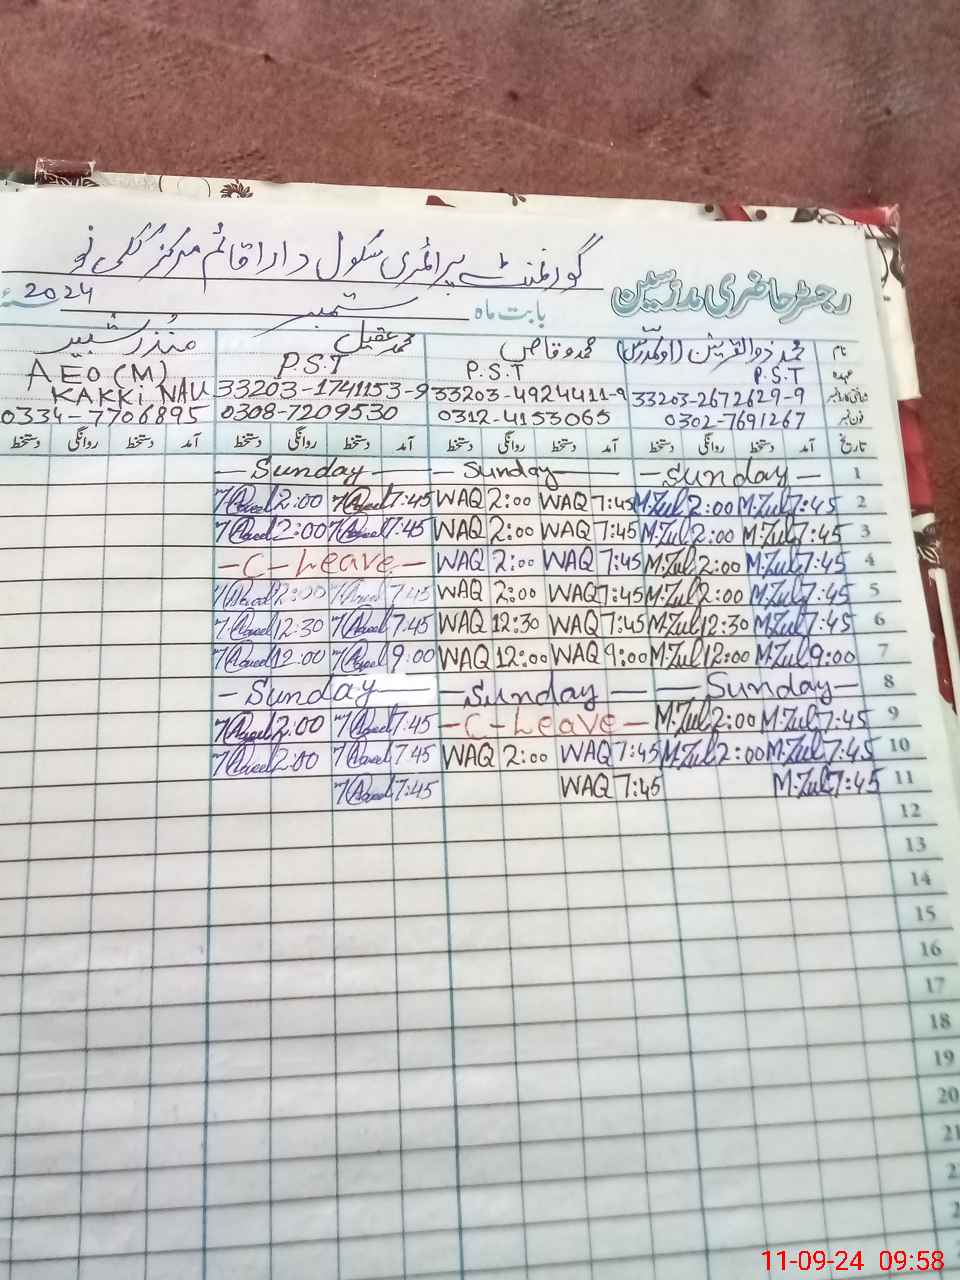 گورنمنٹ پرائمری سکول دارا قائم مرکز ککی نو
رجسٹر حاضری مدرسین
بابت ماہ ستمبر 2024
نام محمد ذوالقرنین محمد وقاص محمد عقیل منذر شبیر
عہدہ P.S.T P.S.T P.S.T AEO (M)
شناختی کارڈ نمبر 33203-2672629-9 33203-4924411-9 33203-1741153-9 KAKKI NAU
فون نمبر 0302-7691267 0312-4153065 0308-7209530 0334-7706895
تاریخ آمد دستخط روانگی دستخط آمد دستخط روانگی دستخط آمد دستخط روانگی دستخط آمد دستخط روانگی دستخط
1 Sunday Sunday Sunday
2 7:45 M.Zul 2:00 M.Zul 7:45 WAQ 2:00 WAQ 7:45 2:00
3 7:45 M.Zul 2:00 M.Zul 7:45 WAQ 2:00 WAQ 7:45 2:00
4 7:45 M.Zul 2:00 M.Zul 7:45 WAQ 2:00 WAQ -C-Leave-
5 7:45 M.Zul 2:00 M.Zul 7:45 WAQ 2:00 WAQ 7:45 2:00
6 7:45 M.Zul 12:30 M.Zul 7:45 WAQ 12:30 WAQ 7:45 12:30
7 9:00 M.Zul 12:00 M.Zul 9:00 WAQ 12:00 WAQ 9:00 12:00
8 Sunday Sunday Sunday
9 7:45 M.Zul 2:00 M.Zul -C-Leave- 7:45 2:00
10 7:45 M.Zul 2:00 M.Zul 7:45 WAQ 2:00 WAQ 7:45 2:00
11 7:45 M.Zul 7:45 WAQ 7:45
12
13
14
15
16
17
18
19
20
21
11-09-24 09:58